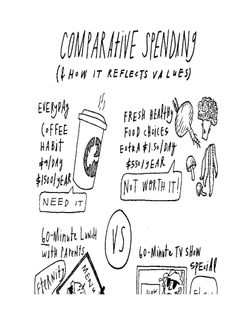 COMPARATIVE SPENDING
(& HOW IT REFLECTS VALUES)
EVERYDAY
COFFEE
HABIT
$4/DAY
$1500/YEAR
NEED IT
FRESH HEALTHY
FOOD CHOICES
EXTRA $1.50/DAY
$550/YEAR
NOT WORTH IT!
VS
60-MINUTE LUNCH
WITH PARENTS
ETERNITY
MENU
60-MINUTE TV SHOW
SPECIAL